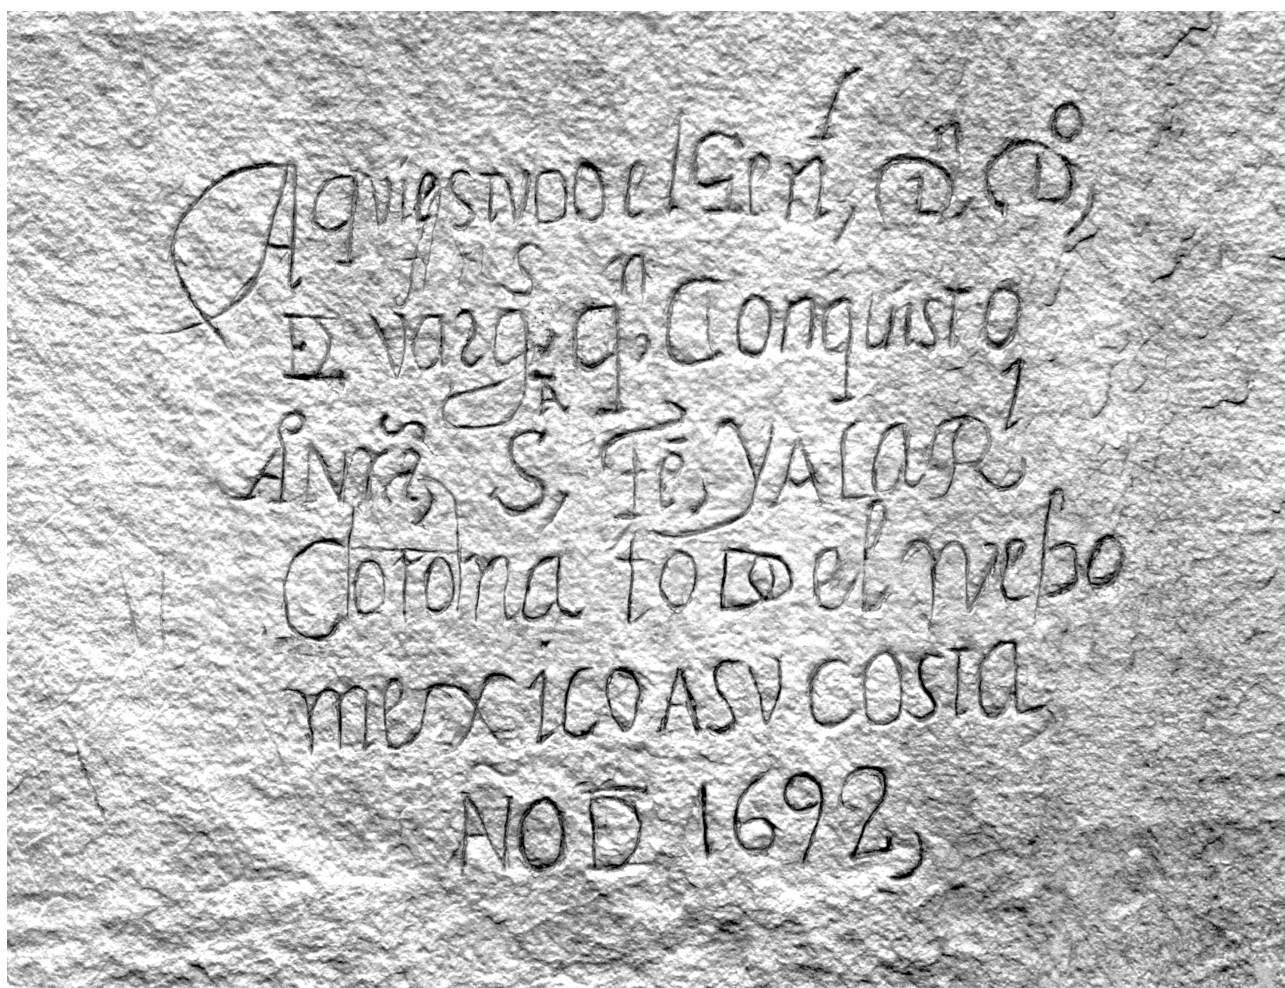 Aqui estvDo el Genl, Dn Do,
DE vargs, qn Conquisto
A Nrã, S, Fē, Y A LA Rl
Corona toDo el nvebo
mexico A SV COSta
AÑO D̄ 1692,